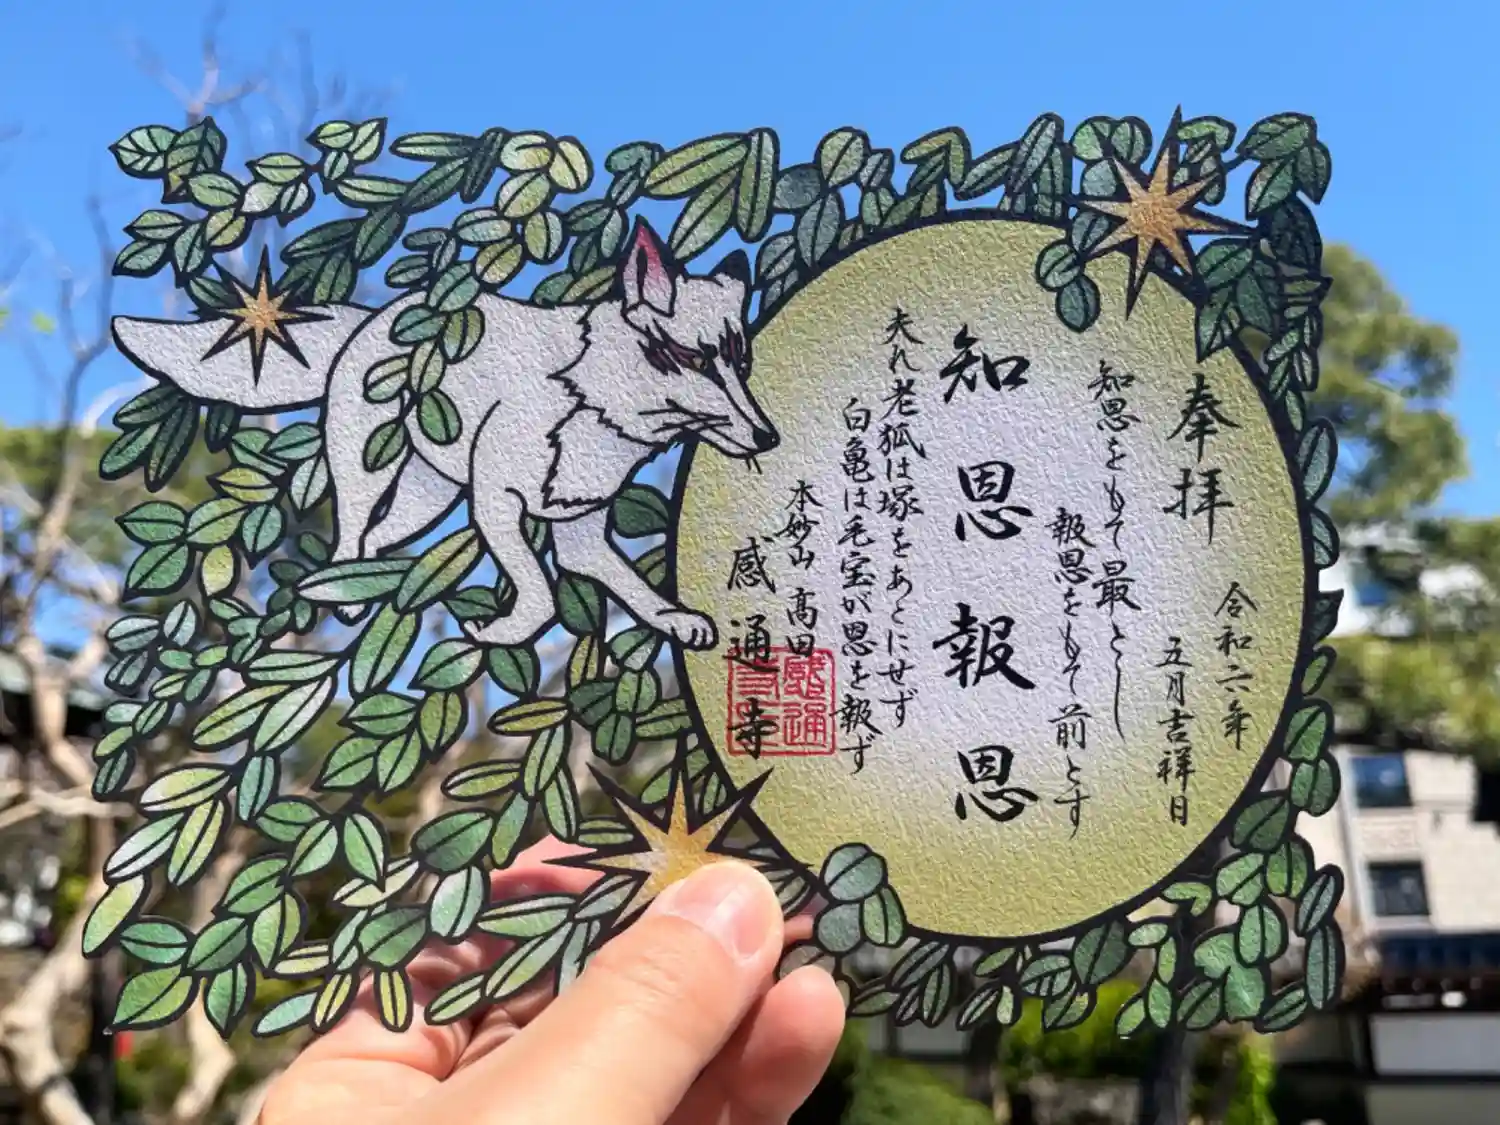 奉拝
令和六年
五月吉祥日
知恩をもて最とし
報恩をもて前とす
知恩報恩
夫れ老狐は塚をあとにせず
白亀は毛宝が恩を報ず
本妙山 高田
感通寺
感通寺